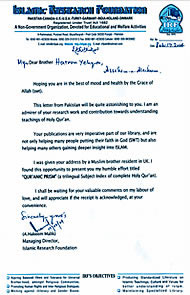 ISLAMIC RESEARCH FOUNDATION
PAKISTAN-CANADA-U.S.A-U.K-TURKEY-GERMANY-INDIA-HOLLAND-DENMARK
Registered Under Act 1882
A Non-Government Organization, Devoted for Educational and Welfare Activities
My Dear Brother Haroon Yahya,
Hoping you are in the best of mood and health by the Grace of
Allah (swt).
This letter from Pakistan will be quite astonishing to you. I am an
admirer of your research work and contribution towards understanding
teachings of Holy Qur'an.
Your publications are very imperative part of our library, and are
not only helping many people putting their faith in God (SWT) but also
helping many others gaining deeper insight into ISLAM.
I was given your address by a Muslim brother resident in UK. I
found this opportunity to present you my humble effort titled
"QUR'ANIC PRISM" (a trilingual Subject Index of complete Holy Qur'an).
I shall be waiting for your valuable comments on my labour of
love, and will appreciate if the receipt is acknowledged, at your
convenience.
Sincerely yours
(A.Haleem Malik)
Managing Director,
Islamic Research Foundation
IRF'S OBJECTIVES